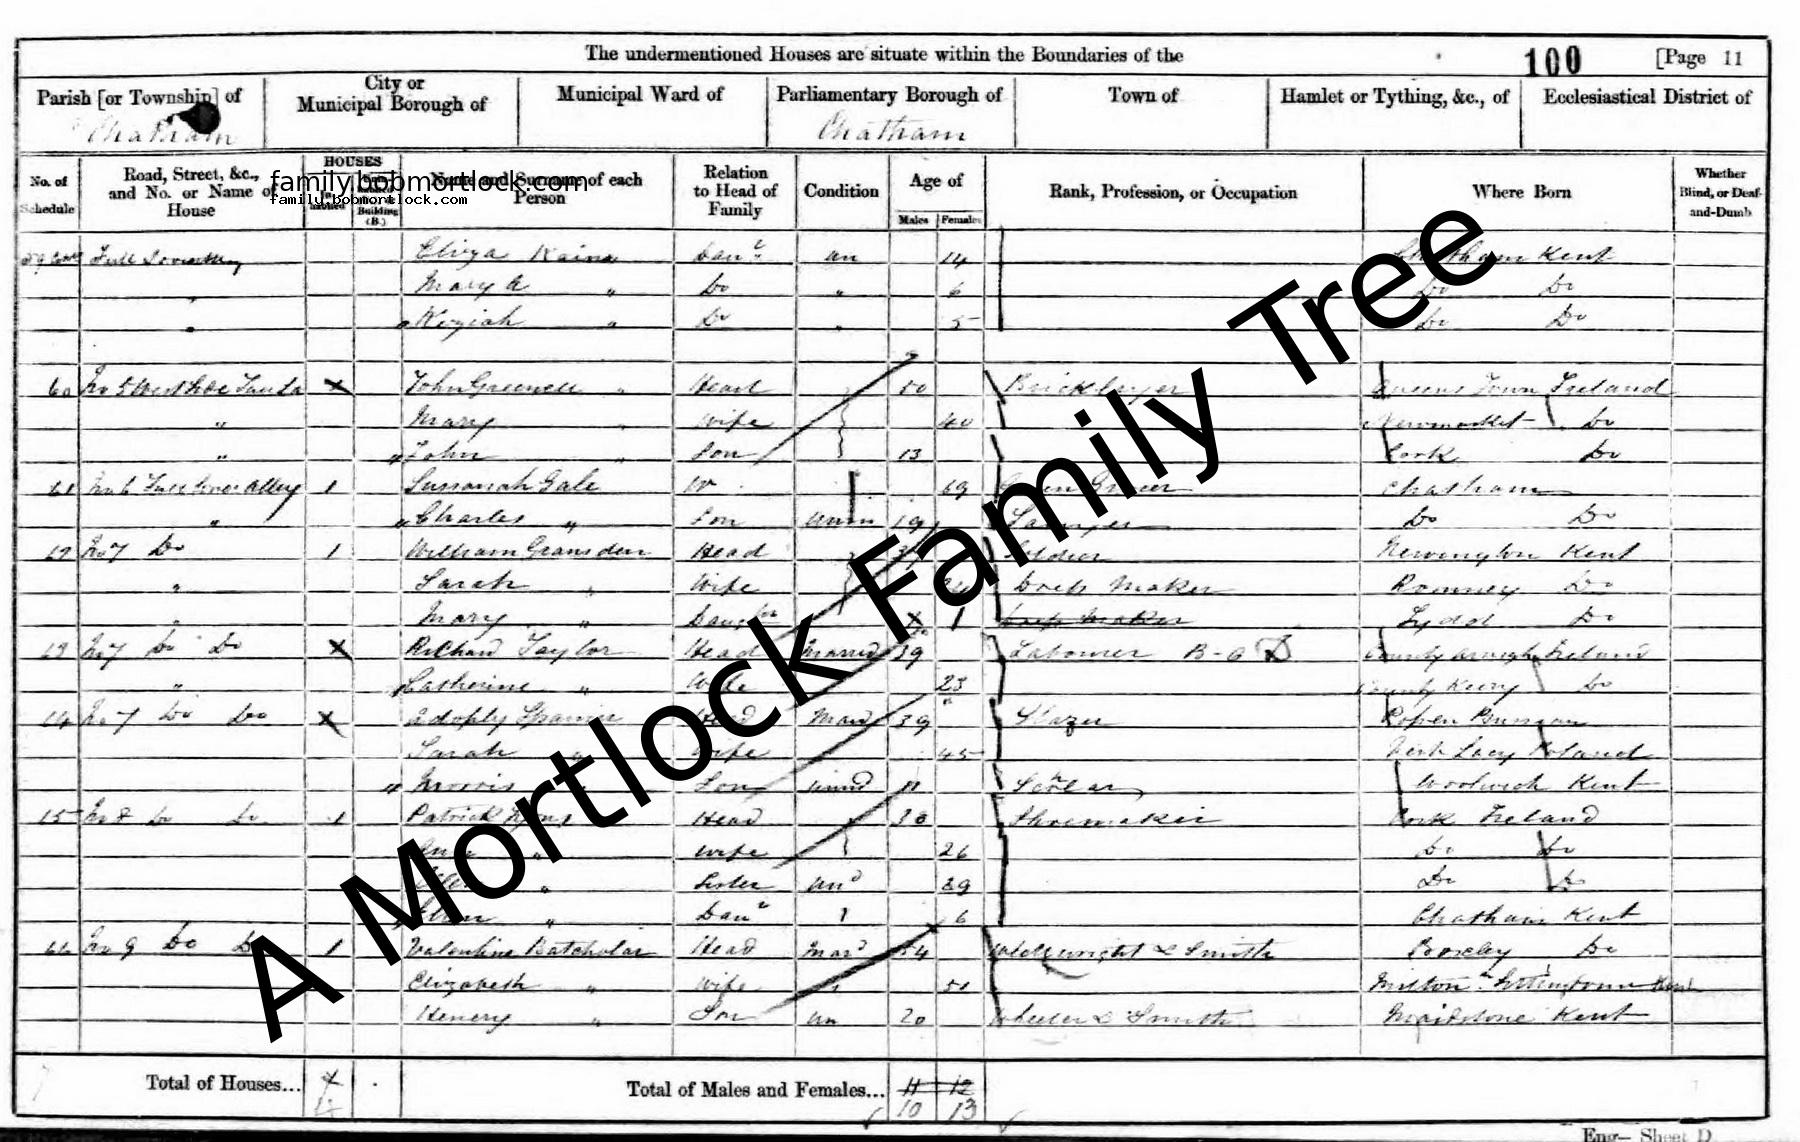 The undermentioned Houses are situate within the Boundaries of the 100 [Page 11
Parish [or Township] of City or Municipal Borough of Municipal Ward of Parliamentary Borough of Town of Hamlet or Tything, &c., of Ecclesiastical District of
Chatham Chatham
No. of Schedule Road, Street, &c., and No. or Name of House HOUSES Inhabited Building (B.) Name and Surname of each Person Relation to Head of Family Condition Age of Males Females Rank, Profession, or Occupation Where Born Whether Blind, or Deaf-and-Dumb
family.bobmortlock.com
family.bobmortlock.com
Eliza Daur un 14 Chatham Kent
Mary A " Do " 6 Do Do
" Keziah " Do 5 Do Do
60 No 5 x John " Head 50 Bricklayer Queens Town Ireland
" Mary " Wife 40 Newmarket Do
" " John " Son 13 Cork Do
61 No 6 Alley 1 Sussanah Gale W 69 Green Grocer Chatham
" " Charles " Son Unm 19 Sawyer Do Do
No 7 Do 1 William Gransden Head Soldier Newington Kent
" Sarah " Wife Dress Maker Romney Do
" Mary " Daughter 1 Dress Maker Lydd Do
No 7 Do Do x Richard Taylor Head Married 39 Labourer County Ireland
" Catherine " Wife 23 County Kerry Do
No 7 Do Do x Head Mard 39 Glazer
Sarah " Wife 45 Poland
" Morris Son Unmd 11 Scolar Woolwich Kent
No 8 Do Do 1 Patrick Head 30 Shoemaker Cork Ireland
Ann " Wife 26 Do Do
" Sister und 29 Do Do
Ellen " Daur 6 Chatham Kent
66 No 9 Do Do 1 Valentine Batcholar Head Mard 54 Wheelwright & Smith Boxley Do
Elizabeth " Wife 51 Milton Kent
Henery " Son un 20 Wheeler & Smith Maidstone Kent
Total of Houses... 4 Total of Males and Females... 11 12
10 13
Eng— Sheet D
A Mortlock Family Tree